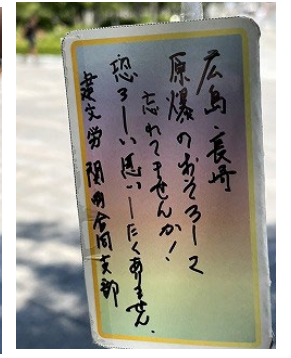 広島・長崎
原爆のおそろしさ
忘れてませんか!
恐ろしい思いしたくありません.
建交労 関西合同支部